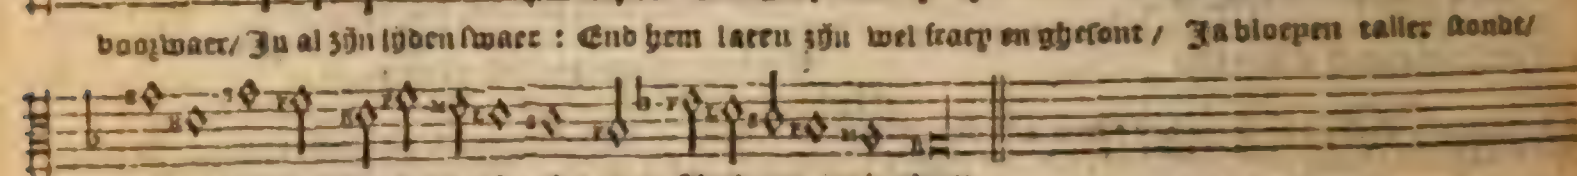 voorwaer/ In al zijn lijden swaer : End hem laten zijn wel fraey en ghesont / Ja bloeyen taller stonde/